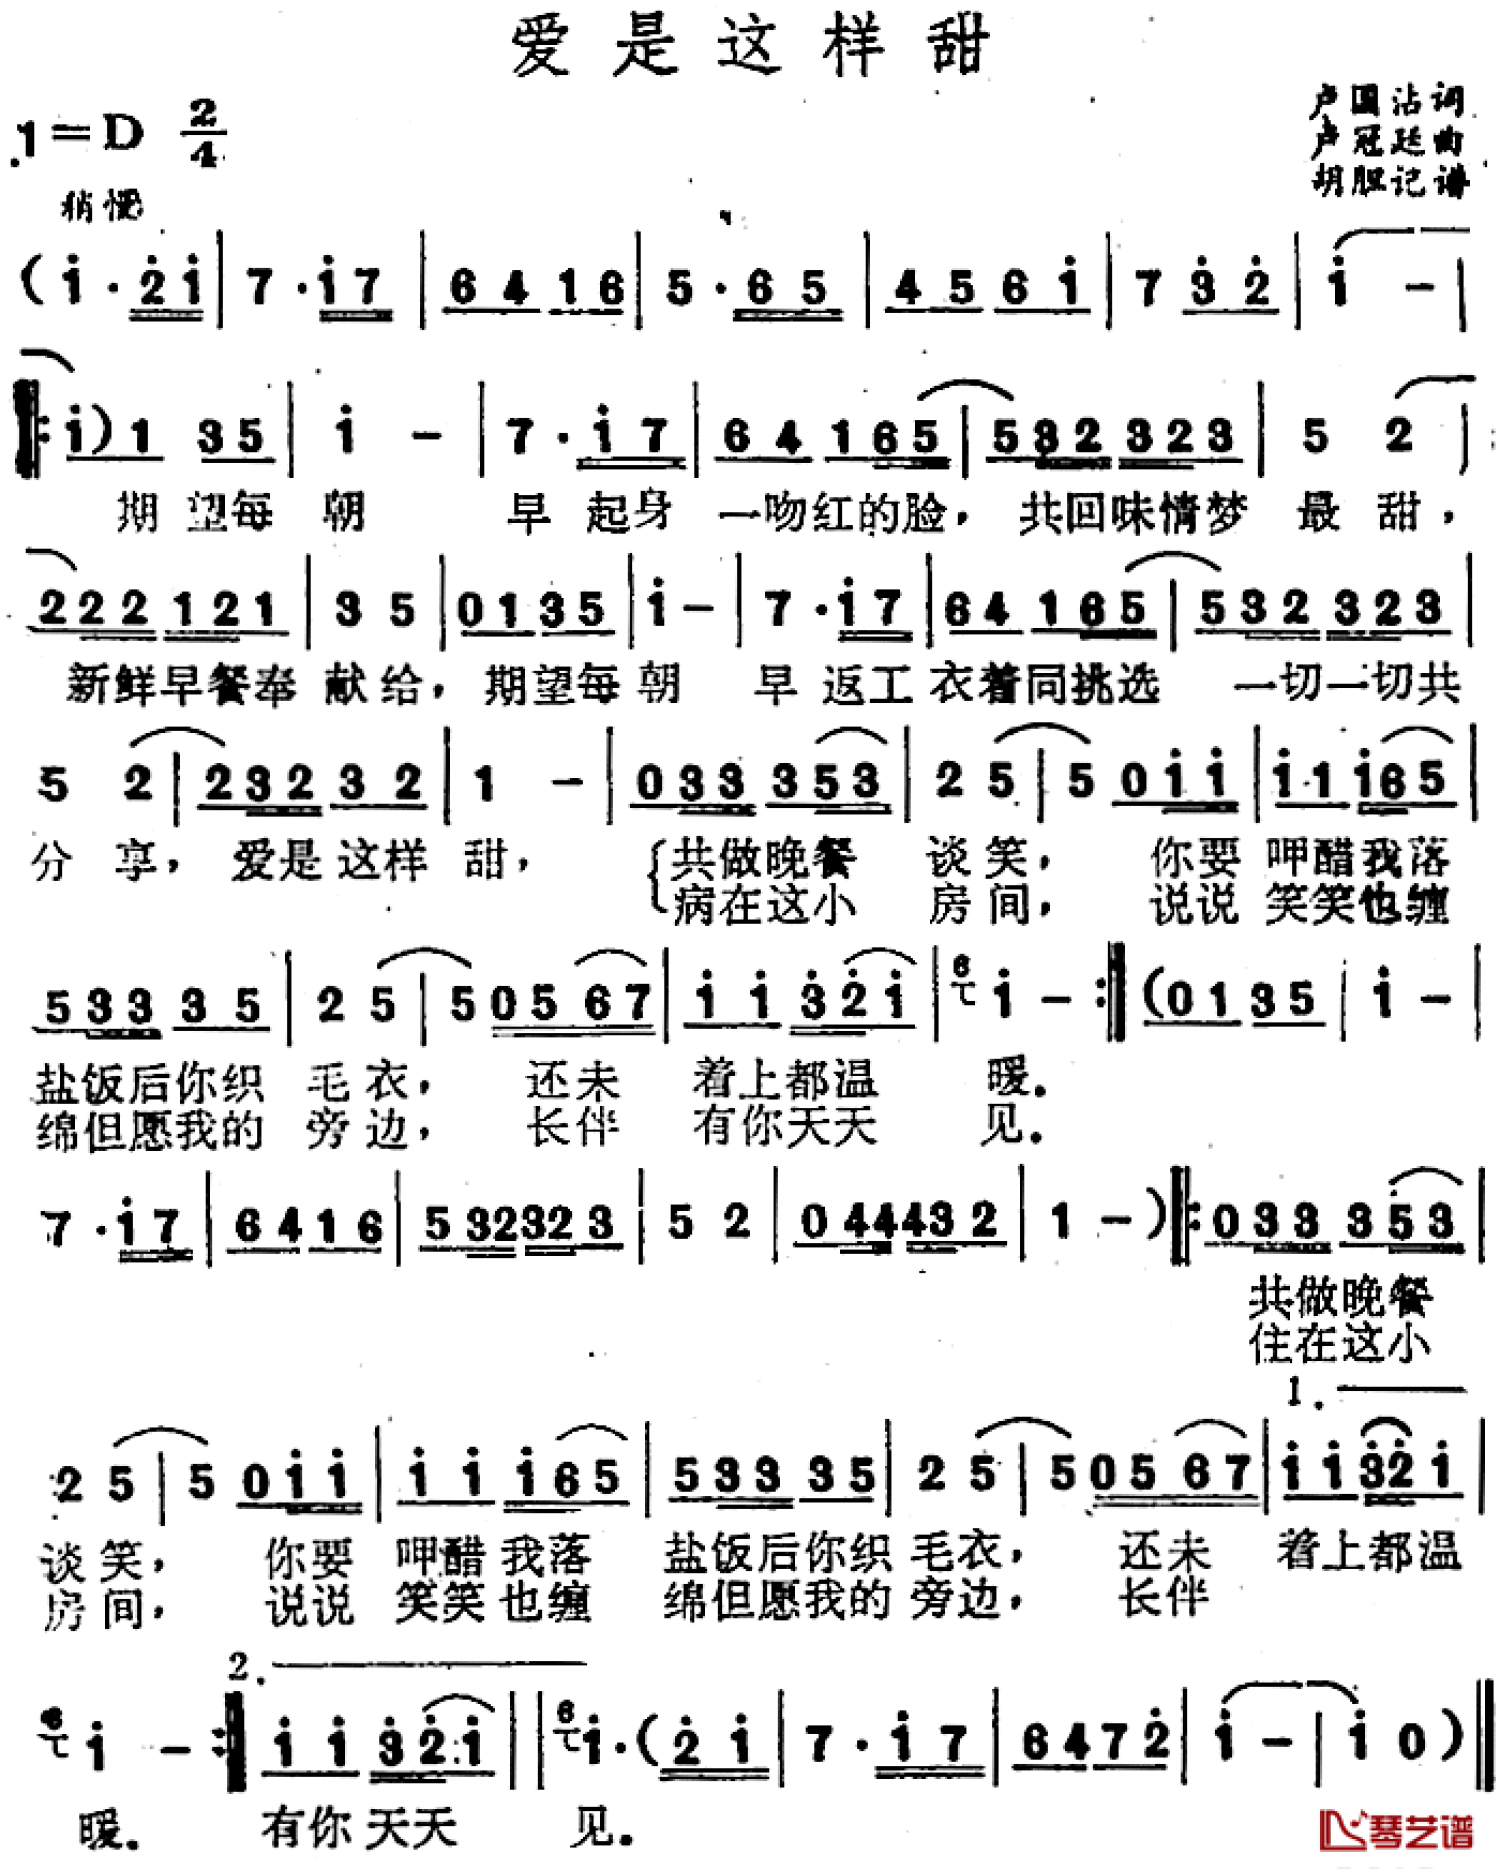 爱是这样甜
1=D 2/4
卢国沾词
卢冠廷曲
胡胆记谱
稍慢
(i·2̇i|7·i7|6416|5·65|456i|73̇2̇|i-|
‖:i)135|i-|7·i7|64165|532323|52|
期望每朝 早起身 一吻红的脸，共回味情梦 最甜，
222121|35|0135|i-|7·i7|64165|532323|
新鲜早餐奉 献给，期望每 朝 早 返工 衣着同挑选 一切一切共
52|23232|1-|033353|25|50ii|iii65|
分 享，爱是这样 甜，{共做晚餐 谈笑，你要 呷醋我落
{病在这小 房间，说说 笑笑也缠
53335|25|50567|ii3̇2̇i|6i-:‖(0135|i-|
盐饭后你织 毛衣，还未 着上都温 暖.
绵但愿我的 旁边，长伴 有你天天 见.
7·i7|6416|532323|52|044432|1-)‖:033353|
共做晚餐
住在这小
1.
25|50ii|iii65|53335|25|50567|ii3̇2̇i|
谈笑，你要 呷醋我落 盐饭后你织 毛衣，还未 着上都温
房间，说说 笑笑也缠 绵但愿我的 旁边，长伴
2.
6i-:‖ii3̇2̇i‖6i·(2̇i|7·i7|6472̇|i-|i0)‖
暖. 有你天天 见.
琴艺谱